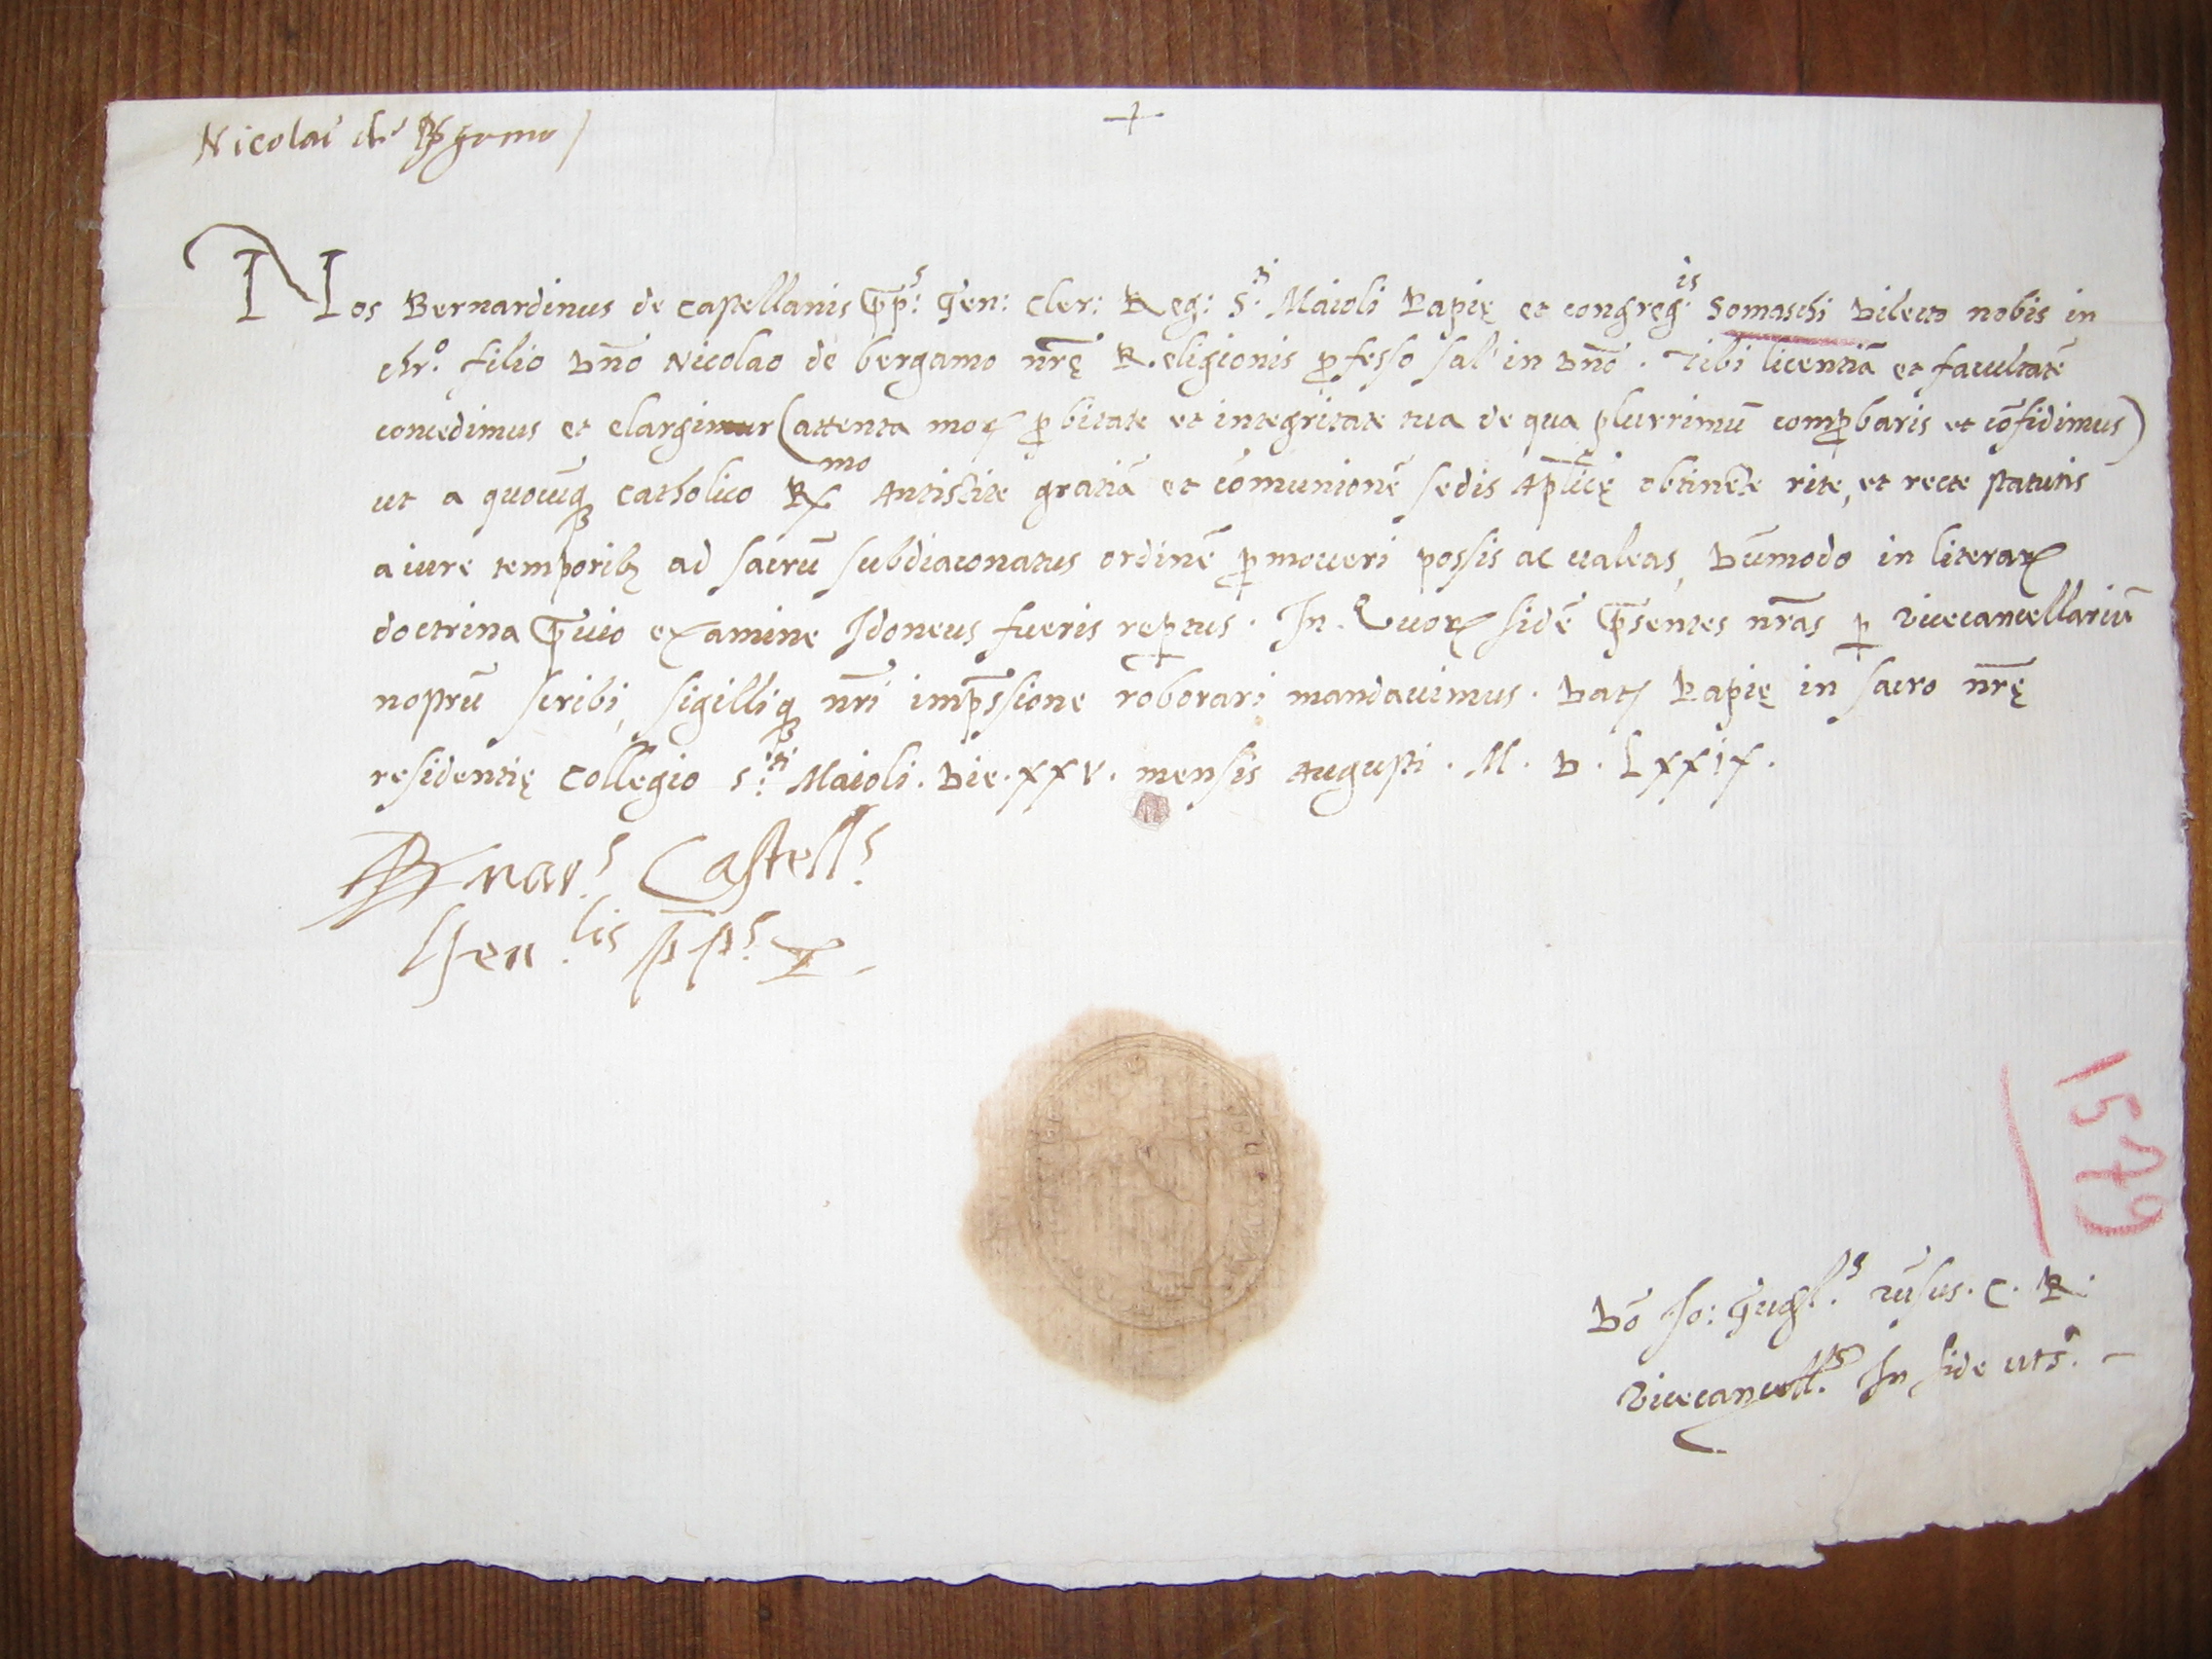 Nicolai de Bergomo
+
Nos Bernardinus de castellanis Pp.s: Gen: Cler: Reg: S.ti Maioli Papię et congreg.is Somaschi Dilecto nobis in
chr.o filio Dn̄o Nicolao de bergamo nr̄ę R.eligionis ꝓfesso sal' in Dn̄o. Tibi licentiā et facultatē
concedimus et elargimur (attenta moꝝ ꝓbitate et integritate tua de qua plurrimū comꝓbaris et cōfidimus)
ut a quocūqꝫ catholico R.mo Antistite gratiā et cōmunionē sedis Ap̄licę obtinēte rite, et recte statutis
a iure temporibꝫ ad sacrū subdiaconatus ordinē ꝓmoueri possis ac ualeas, Dūmodo in literaꝝ
doctrina P̄uio examine Idoneus fueris reꝑtus. In Quoꝝ fidē P̄sentes nr̄as ꝑ Vicecancellariū
nostrū scribi, sigilliqꝫ nr̄i imp̄ssione roborari mandauimus. Datꝭ Papię in sacro nr̄ę
residentię Collegio S.ti Maioli. Die. xxv. mensis Augusti. M. D. Lxxix.
Bernar.s Castell.s
Gen.lis pp.s
1579
Dō Jo: Gugl.s rufus. C. R.
Vicecancell.s In fide uts.a